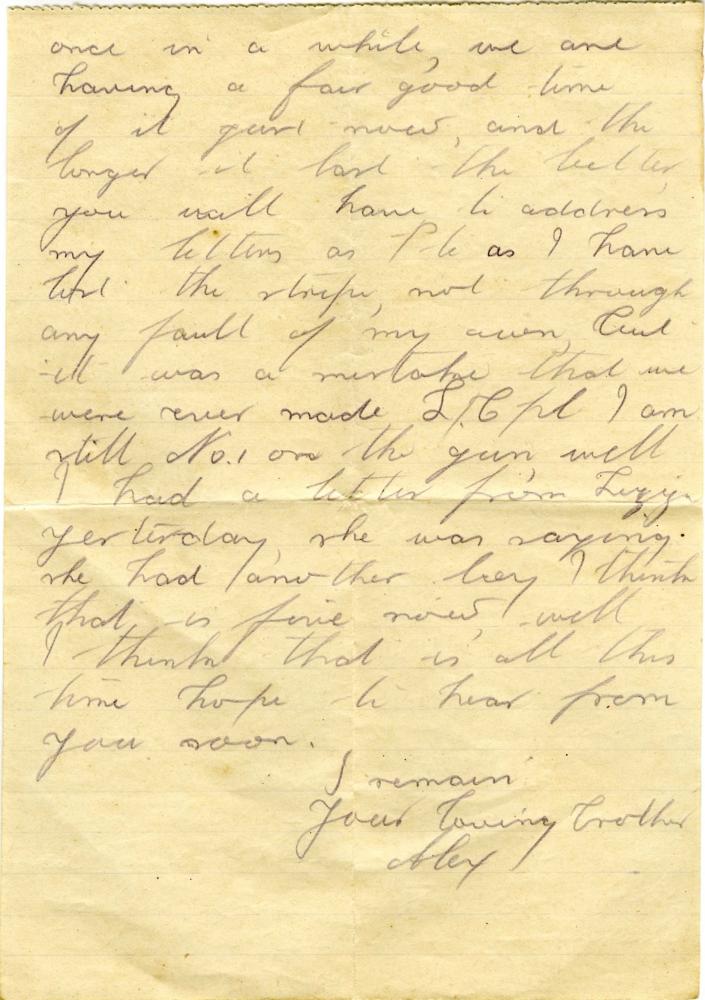 once in a while, we are
having a fair good time
of it just now, and the
longer it last the better
you will have to address
my letters as Pte as I have
lost the stripe, not through
any fault of my own, but
it was a mistake that we
were ever made L/Cpl I am
still No.1 on the gun well
I had a letter from Lizzie
yesterday, she was saying
she had another boy I think
that is five now, well
I think that is all this
time hope to hear from
you soon.
I remain
Your loving brother
Alex